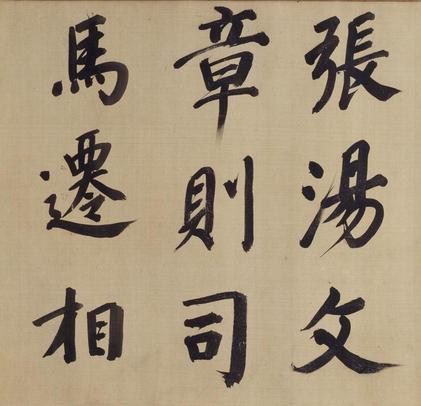 張湯文
章則司
馬遷相